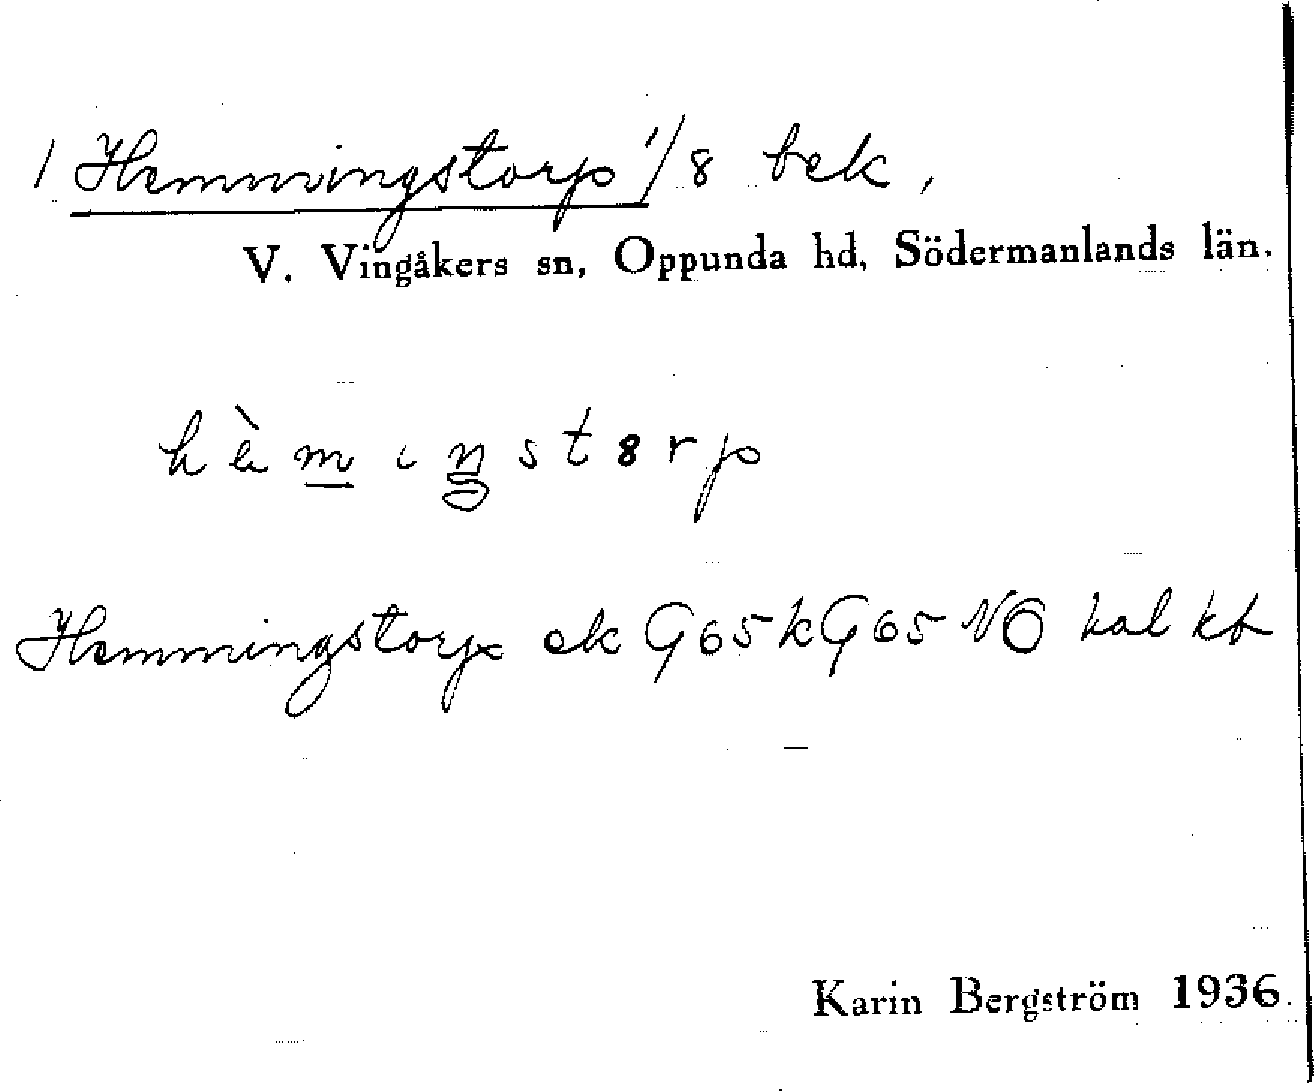 1 Hemmingstorp 1/8 bek,
V. Vingåkers sn, Oppunda hd, Södermanlands län.
hèmıŋstɞrp
Hemmingstorp ek G65k G65 NO hal kb
Karin Bergström 1936.